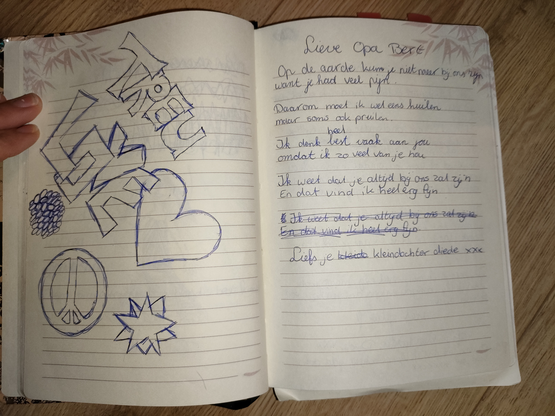 Lieve Opa Bert
Op de aarde kun je niet meer bij ons zijn
want je had veel pijn.
Daarom moet ik wel eens huilen
maar soms ook pruilen.
heel
Ik denk best vaak aan jou
omdat ik zo veel van je hou
Ik weet dat je altijd bij ons zal zijn
En dat vind ik heel erg fijn
Ik weet dat je altijd bij ons zal zijn
En dat vind ik heel erg fijn
Liefs je kleindochter xxx